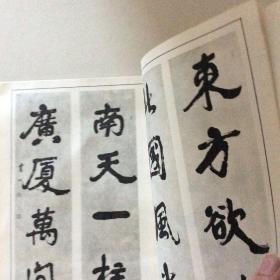 東方欲
北國風
南天一柱
廣厦萬间